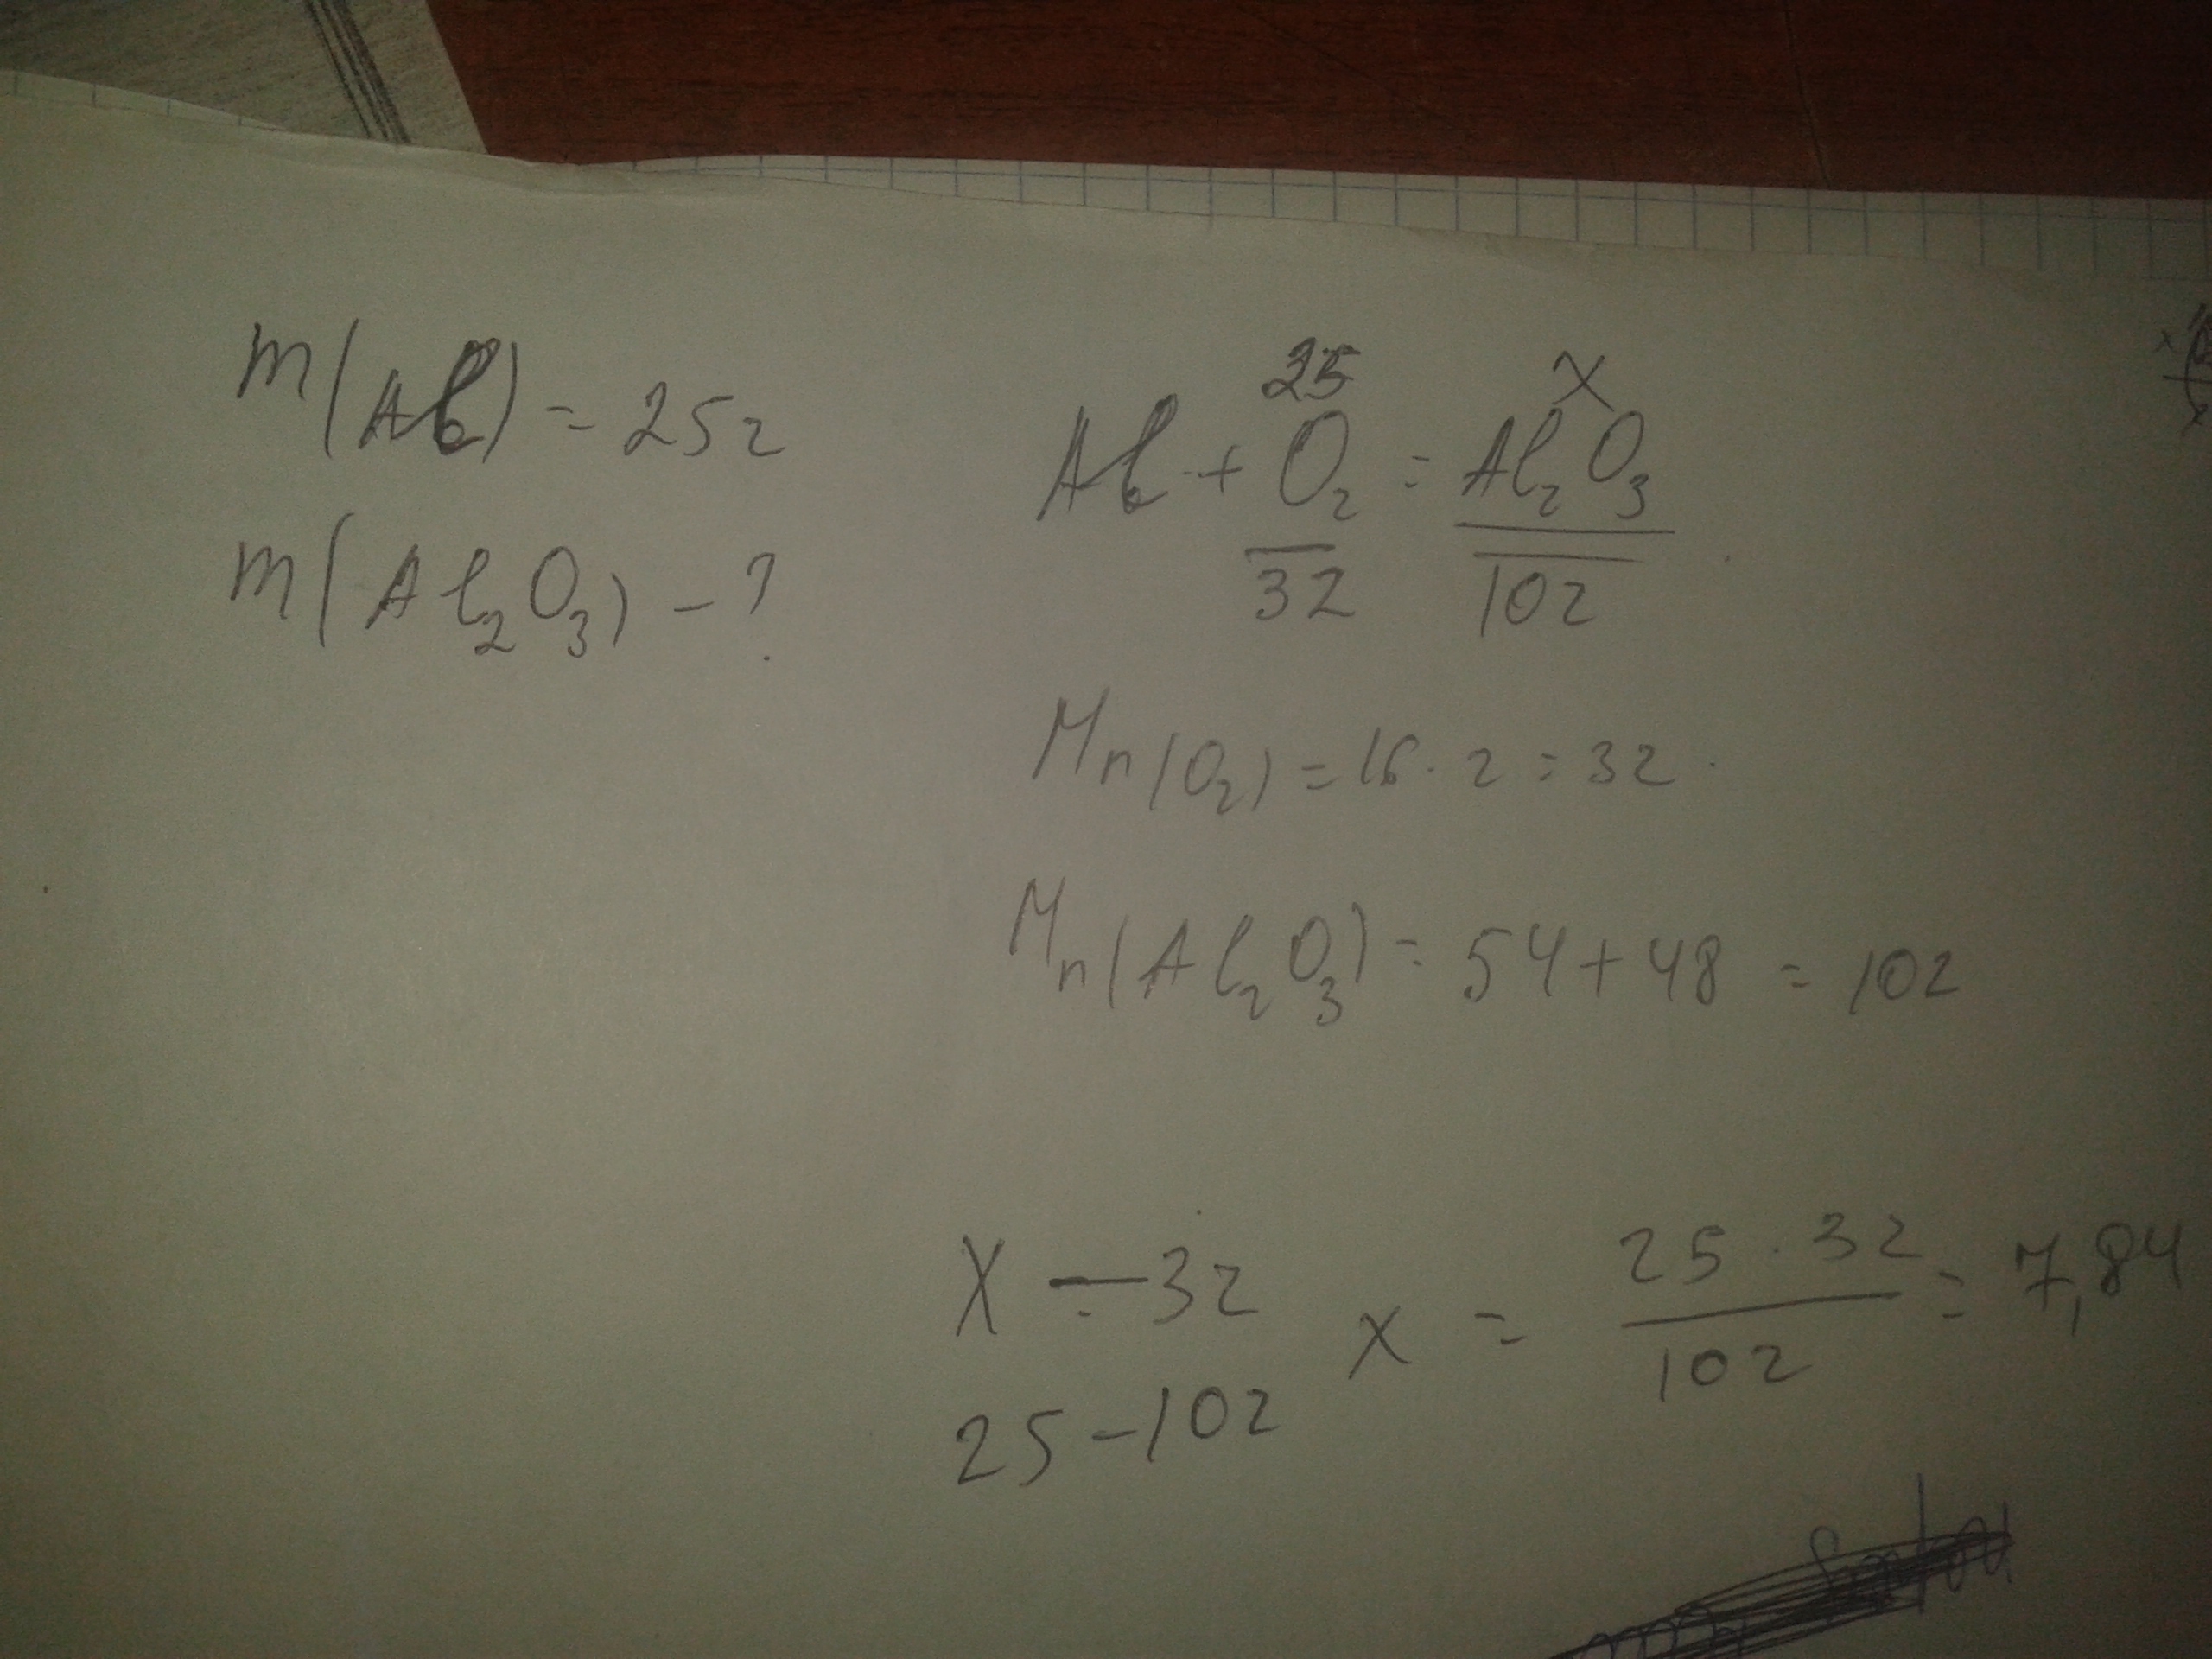 m(Al) = 25г
m(Al₂O₃) - ?
25 x
Al + O₂ = Al₂O₃
32 102
Mr(O₂) = 16 · 2 = 32
Mr(Al₂O₃) = 54 + 48 = 102
x — 32
25 - 102
x = 25 · 32 / 102 = 7,84